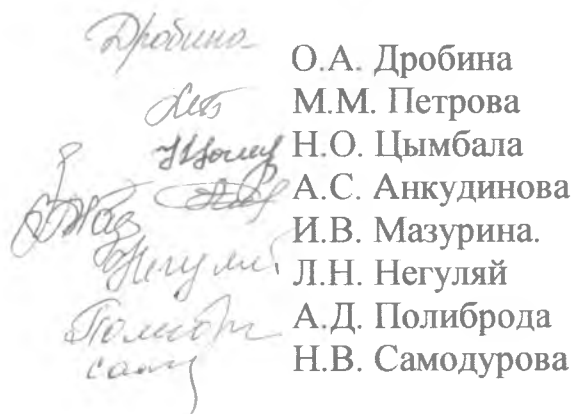 Дробина О.А. Дробина
М.М. Петрова
Н.О. Цымбала
А.С. Анкудинова
И.В. Мазурина.
Негуляй Л.Н. Негуляй
А.Д. Полиброда
Н.В. Самодурова